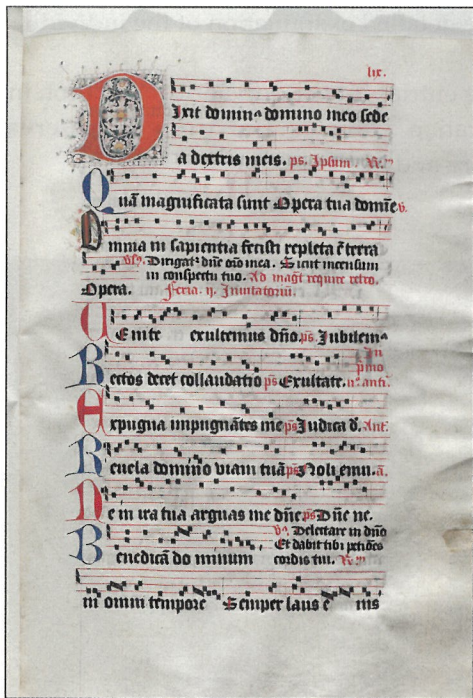 lix.
Dixit domin⁹ domino meo sede
a dextris meis. ps. Ipsum R.
Quā magnificata sunt Opera tua domīe v.
Omnia in sapientia fecisti repleta ē terra
Vsꝰ. Dirigat᷑ dn̄e orō mea. Sicut incensum
in conspectu tuo. Ad magt̄ require retro.
Opera. Feria. ij. Inuitatoriū.
Uenite exultemus dn̄o. ps̄ Jubilem⁹
In
pͥmo
Rectos decet collaudatio ps Exultate. n. anti.
Expugna impugnātes me ps Judica d. Ant.
Reuela domino viam tuā ps Noli emu. a.
Ne in ira tua arguas me dn̄e ps Dn̄e ne.
Vꝰ. Delectare in dn̄o
Et dabit tibi petiōes
cordis tui. R.
Benedicā do minum
in omni tempore Semper laus e ius